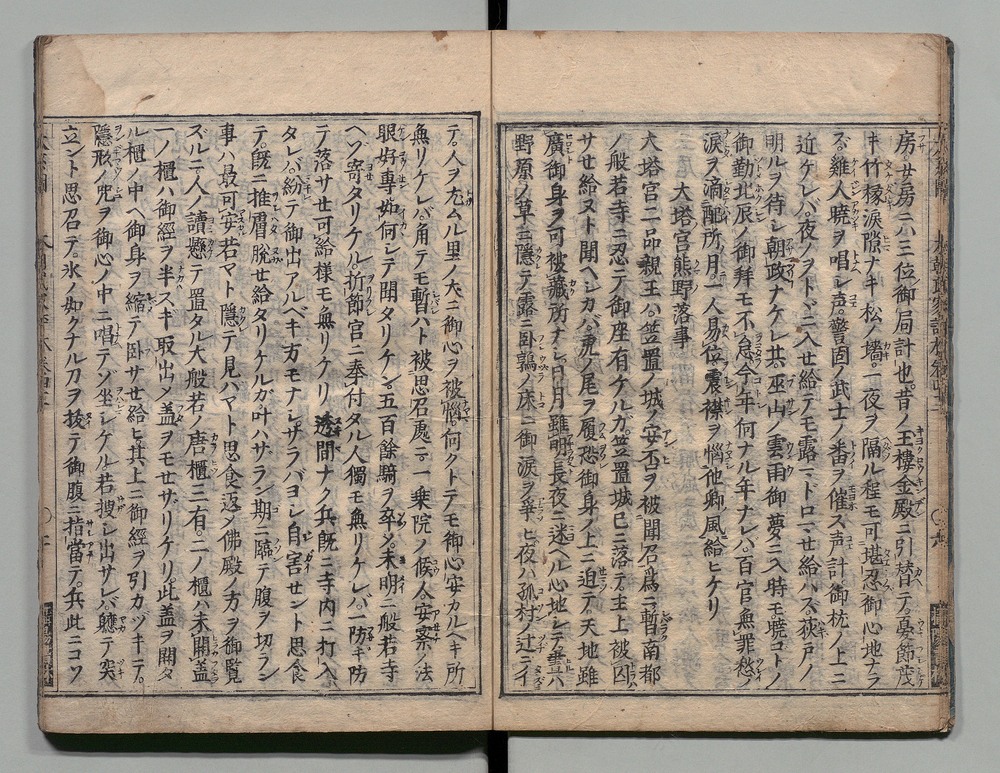 房。女房ニハ三位御局計也。昔ノ玉樓金殿ニ引替テ。憂節茂
キ竹椽。涙隙ナキ松ノ墻。一夜ヲ隔ル程モ可堪忍御心地ナラ
ズ。雞人曉ヲ唱シ声。警固ノ武士ノ番ヲ催ス声計。御枕ノ上ニ
近ケレバ。夜ノヲトヾニ入せ給テモ露マドロマせ給ハズ。萩戸ノ
明ルヲ待シ朝政ナケレ共。巫山ノ雲雨御夢ニ入時モ曉コトノ
御勤北辰ノ御拜モ不怠。今年何ナル年ナレバ。百官無罪愁ノ
涙ヲ滴配所月。一人易位宸襟ヲ惱他郷風給ヒケリ
大塔宮熊野落事
大塔宮二品親王ハ。笠置ノ城ノ安否ヲ被聞召爲ニ。暫南都
ノ般若寺ニ忍テ御座有ケルガ。笠置城已ニ落テ。主上被囚
サせ給ヌト聞ヘシカバ。虎ノ尾ヲ履恐御身ノ上ニ迫テ。天地雖
廣御身ヲ可被藏所ナシ。日月雖明長夜ニ迷ヘル心地シテ。晝ハ
野原ノ草ニ隱テ露ニ臥鶉ノ床ニ御涙ヲ爭ヒ。夜ハ孤村ノ辻ニイ
テ。人ヲ尤ムル里ノ犬ニ御心ヲ被惱。何クトテモ御心安カルヘキ所
無リケレバ。角テモ暫ハト被思召處ニ。一乗院ノ候人安案ノ法
眼好專。如何シテ聞タリケン。五百餘騎ヲ卒シ。未明ニ般若寺
ヘゾ寄タリケル。折節宮ニ奉付タル人獨モ無リケレバ。一防キ防
テ落サせ可給様モ無リケリ。透間ナク兵既ニ寺内ニ打入
タレバ。紛テ御出アルベキ方モナシ。サラバヨシ自害せント思食
テ。既ニ推膚脱せ給タリケルガ。叶ハサラン期ニ臨テ腹ヲ切ラン
事ハ最可安。若マト隱テ見ハマト思食返シ。佛殿ノ方ヲ御覧
ズルニ。人ノ讀懸テ置タル大般若ノ唐櫃三有。二ノ櫃ハ未開蓋。
一ノ櫃ハ御經ヲ半スギ取出シ蓋ヲモせザリケリ。此蓋ヲ開タ
ル櫃ノ中ヘ御身ヲ縮テ臥サせ給ヒ。其上ニ御經ヲ引カヅキテ。
隱形ノ呪ヲ御心ノ中ニ唱テゾ坐シケル。若捜シ出サレバ。軈テ突
立ント思召テ。氷ノ如クナル刀ヲ拔テ御腹ニ指當テ。兵此ニコソ